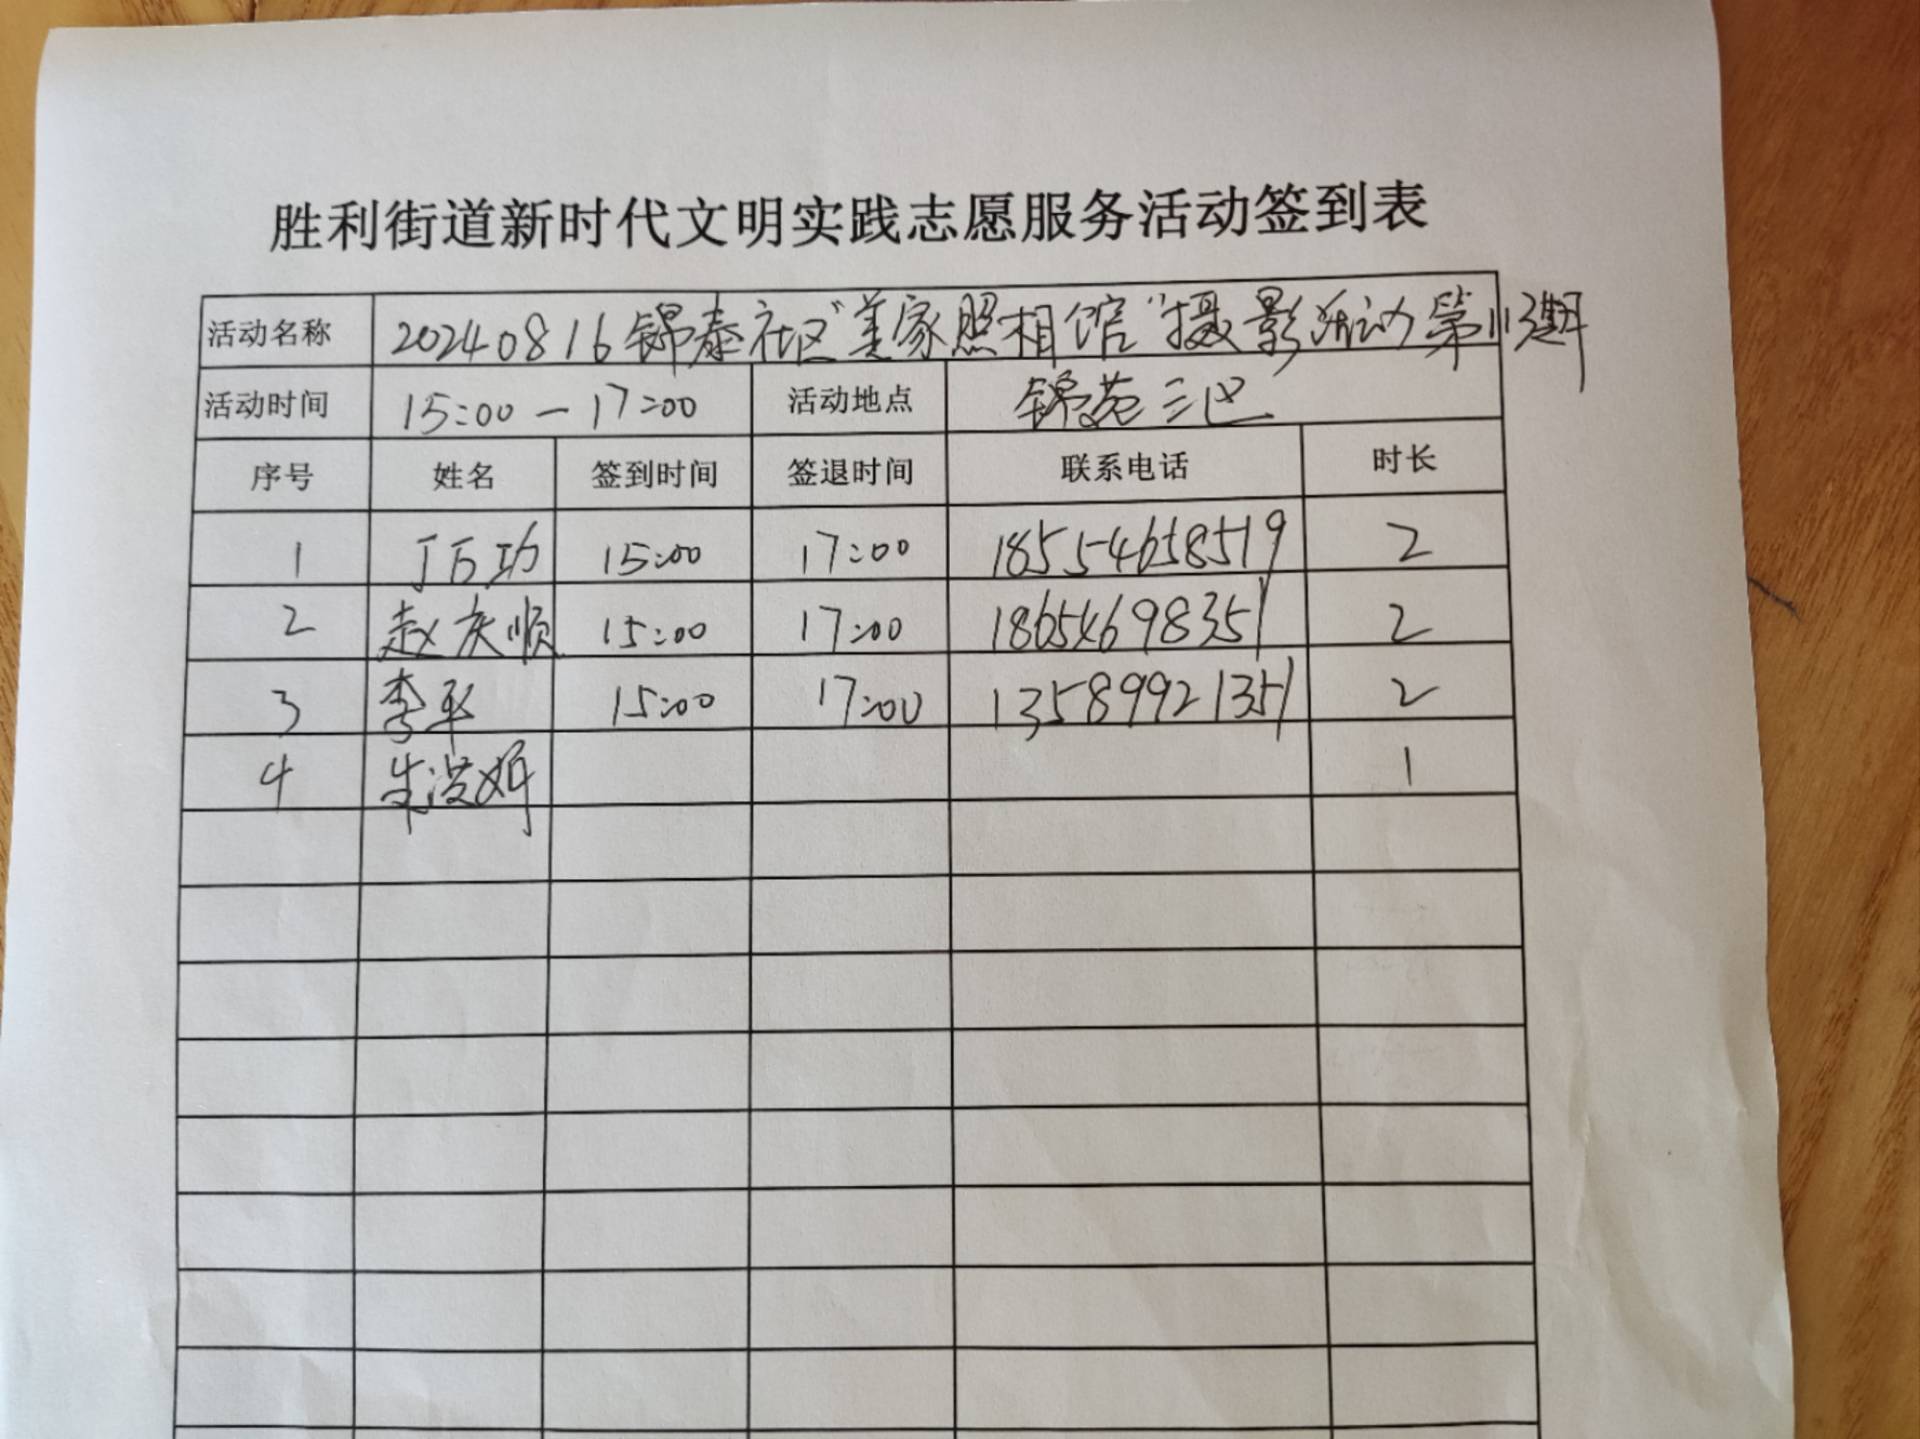 胜利街道新时代文明实践志愿服务活动签到表
活动名称 20240816锦泰社区“美家照相馆”摄影活动第113期
活动时间 15:00-17:00 活动地点 锦苑三区
序号 姓名 签到时间 签退时间 联系电话 时长
1 丁百功 15:00 17:00 18554658519 2
2 赵庆顺 15:00 17:00 18654698351 2
3 李平 15:00 17:00 13589921351 2
4 1